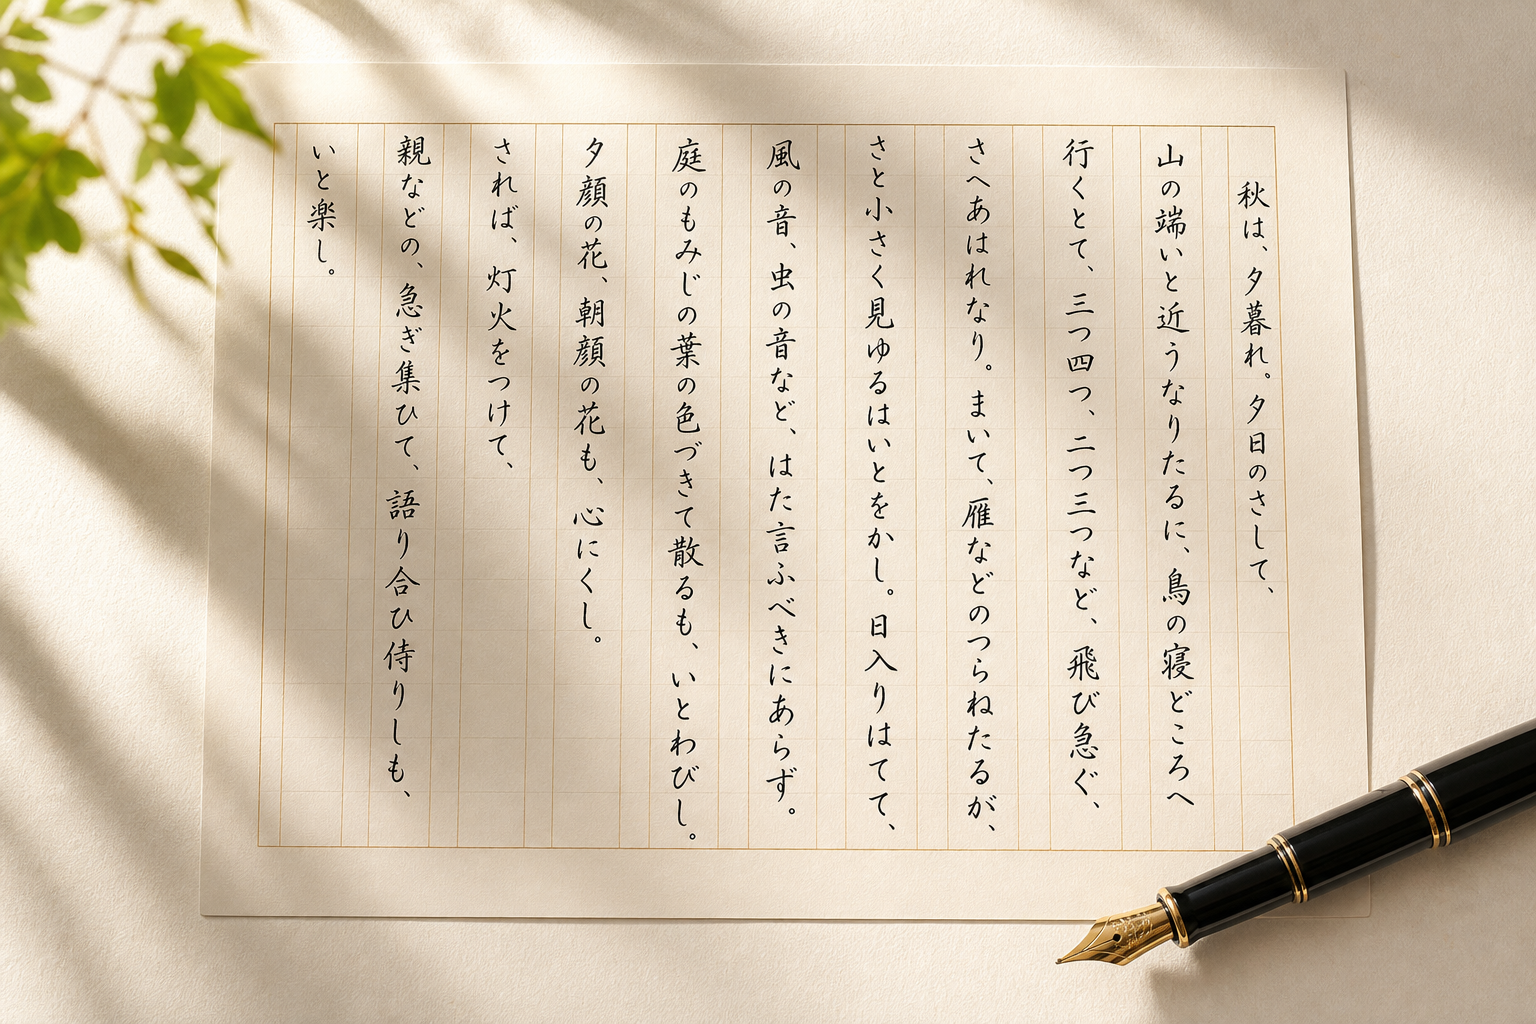 秋は、夕暮れ。夕日のさして、
山の端いと近うなりたるに、鳥の寝どころへ
行くとて、三つ四つ、二つ三つなど、飛び急ぐ、
さへあはれなり。まいて、雁などのつらねたるが、
さと小さく見ゆるはいとをかし。日入りはてて、
風の音、虫の音など、はた言ふべきにあらず。
庭のもみじの葉の色づきて散るも、いとわびし。
夕顔の花、朝顔の花も、心にくし。
されば、灯火をつけて、
親などの、急ぎ集ひて、語り合ひ侍りしも、
いと楽し。